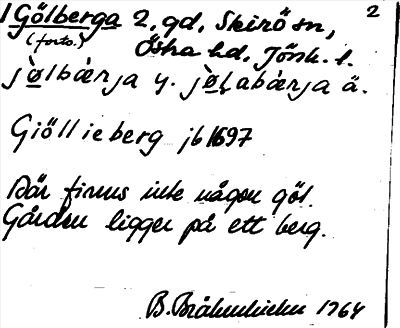 1 Gölberga 2. gd. Skirö sn, 2
(forts.) Östra hd. Jönk. l.
jø̀lbærja y. jø̀ḷabærja ä.
Giöllieberg jb 1697
Där finns inte någon göl.
Gården ligger på ett berg.
B. 1964